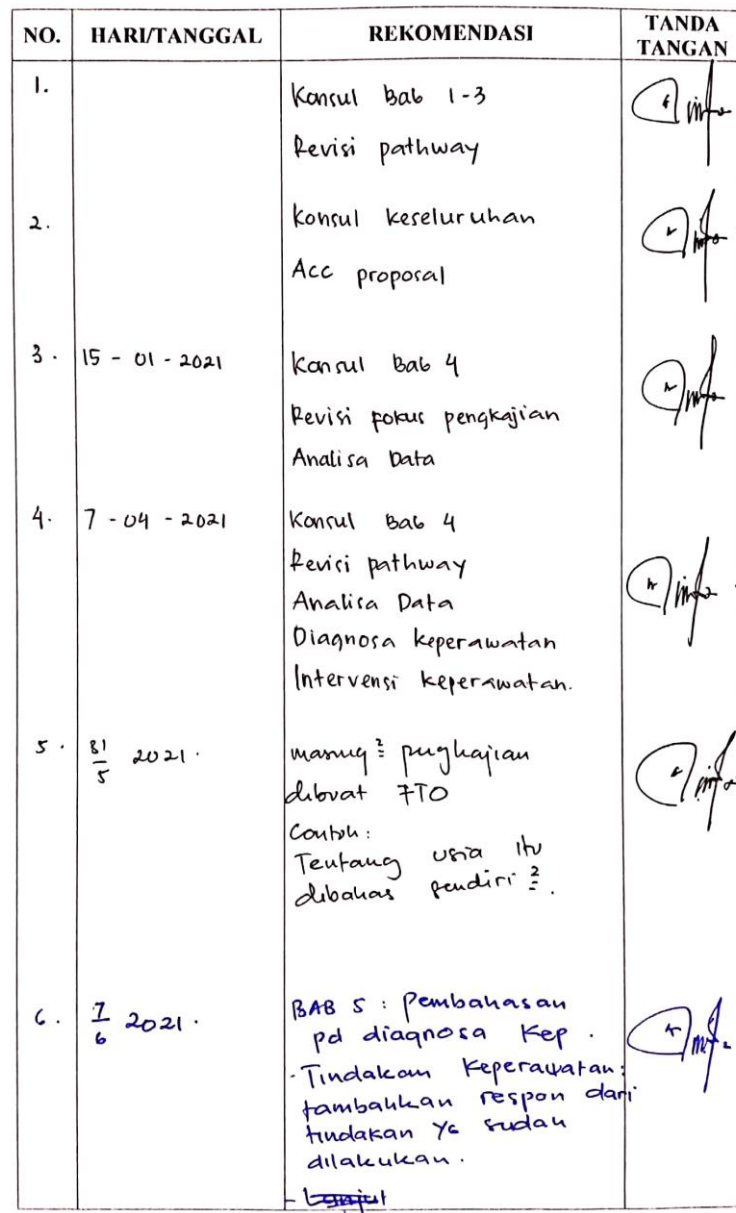 NO. HARI/TANGGAL REKOMENDASI TANDA TANGAN
1. Konsul Bab 1-3
Revisi pathway
2. Konsul keseluruhan
Acc proposal
3. 15 - 01 - 2021 Konsul Bab 4
Revisi fokus pengkajian
Analisa Data
4. 7 - 04 - 2021 Konsul Bab 4
Revisi pathway
Analisa Data
Diagnosa keperawatan
Intervensi keperawatan.
5. 31/5 2021. masing² pengkajian
dibuat FTO
Contoh :
Tentang usia itu
dibahas sendiri².
6. 7/6 2021. BAB 5 : Pembahasan
pd diagnosa Kep.
- Tindakan Keperawatan :
tambahkan respon dari
tindakan yg sudah
dilakukan.
- Lanjut